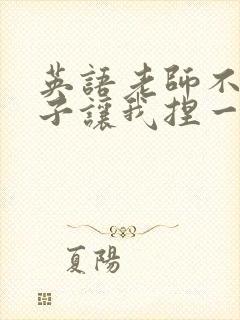 英語老師不
子讓我捏一
夏陽